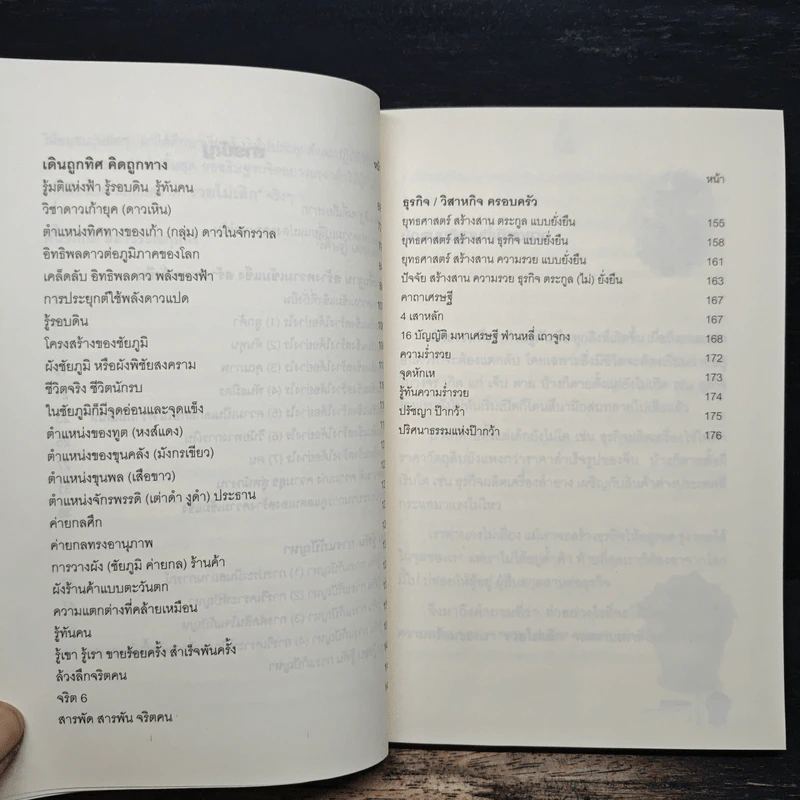 เดินถูกทิศ คิดถูกทาง
รู้มติแห่งฟ้า รู้รอบดิน รู้ทันคน
วิชาดาวเก้ายุค (ดาวเหิน)
ตำแหน่งทิศทางของเก้า (กลุ่ม) ดาวในจักรวาล
อิทธิพลดาวต่อภูมิภาคของโลก
เคล็ดลับ อิทธิพลดาว พลังของฟ้า
การประยุกต์ใช้พลังดาวแปด
รู้รอบดิน
โครงสร้างของชัยภูมิ
ผังชัยภูมิ หรือผังพิชัยสงคราม
ชีวิตจริง ชีวิตนักรบ
ในชัยภูมิก็มีจุดอ่อนและจุดแข็ง
ตำแหน่งของทูต (หงส์แดง)
ตำแหน่งของขุนคลัง (มังกรเขียว)
ตำแหน่งขุนพล (เสือขาว)
ตำแหน่งจักรพรรดิ (เต่าดำ งูดำ) ประธาน
ค่ายกลศึก
ค่ายกลทรงอานุภาพ
การวางผัง (ชัยภูมิ ค่ายกล) ร้านค้า
ผังร้านค้าแบบตะวันตก
ความแตกต่างที่คล้ายเหมือน
รู้ทันคน
รู้เขา รู้เรา ขายร้อยครั้ง สำเร็จพันครั้ง
ล้วงลึกจริตคน
จริต 6
สารพัด สารพัน จริตคน
หน้า
ธุรกิจ / วิสาหกิจ ครอบครัว
ยุทธศาสตร์ สร้างสาน ตระกูล แบบยั่งยืน 155
ยุทธศาสตร์ สร้างสาน ธุรกิจ แบบยั่งยืน 158
ยุทธศาสตร์ สร้างสาน ความรวย แบบยั่งยืน 161
ปัจจัย สร้างสาน ความรวย ธุรกิจ ตระกูล (ไม่) ยั่งยืน 163
คาถาเศรษฐี 167
4 เสาหลัก 167
16 บัญญัติ มหาเศรษฐี ฟานหลี่ เถาจูกง 168
ความร่ำรวย 172
จุดหักเห 173
รู้ทันความร่ำรวย 174
ปรัชญา ป๋ากว้า 175
ปริศนาธรรมแห่งป๋ากว้า 176